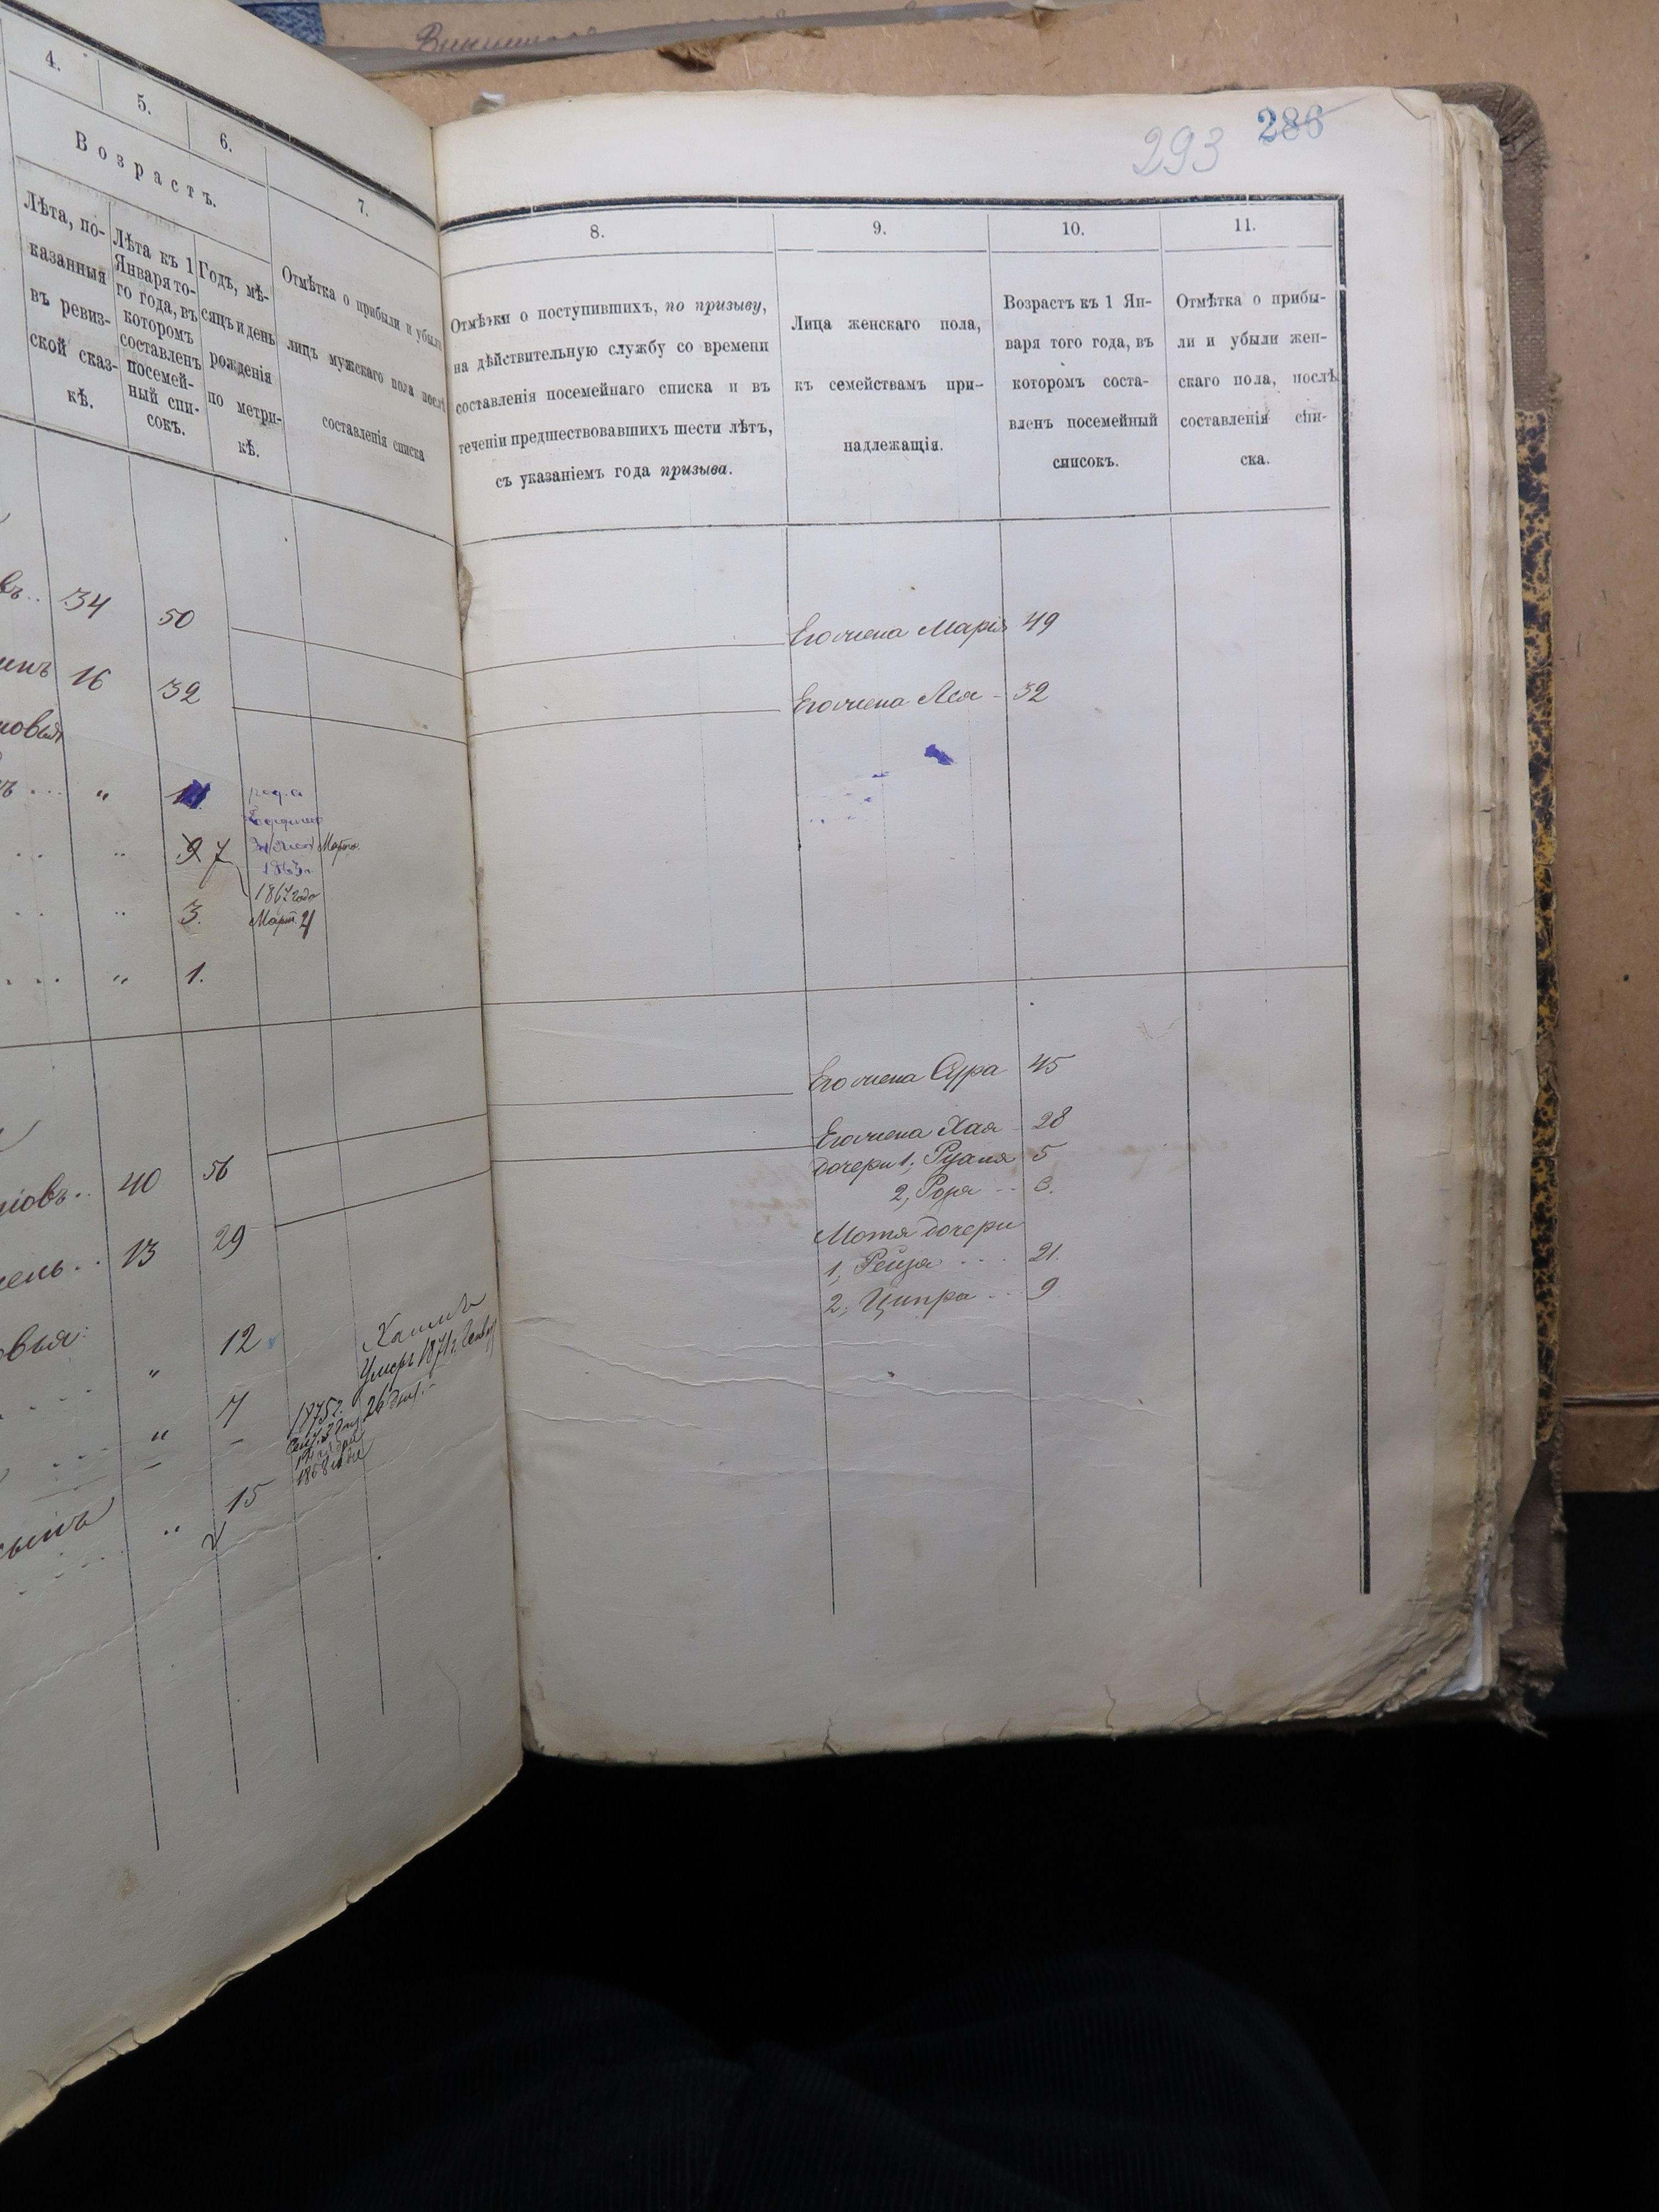 293 286
4.
5.
6.
7.
Возрастъ.
Лѣта, по-
казанныя
въ ревиз-
ской сказ-
кѣ.
Лѣта къ 1
Января то-
го года, въ
которомъ
составленъ
посемей-
ный спи-
сокъ.
Годъ, мѣ-
сяцъ и день
рожденія
по метри-
кѣ.
Отмѣтка о прибыли и убыли
лицъ мужскаго пола послѣ
составленія списка
34 50
16 32
" 11.
" 9 7
1867 года
Март. 21
" 3.
" 1.
40 56
13 29
" 12
Умеръ 1871 г.
" 7
1875 г.
26
сынъ " 15
8.
9.
10.
11.
Отмѣтки о поступившихъ, по призыву,
на дѣйствительную службу со времени
составленія посемейнаго списка и въ
теченіи предшествовавшихъ шести лѣтъ,
съ указаніемъ года призыва.
Лица женскаго пола,
къ семействамъ при-
надлежащія.
Возрастъ къ 1 Ян-
варя того года, въ
которомъ соста-
вленъ посемейный
списокъ.
Отмѣтка о прибы-
ли и убыли жен-
скаго пола, послѣ
составленія спи-
ска.
Его жена Марія 49
Его жена Лея - 32
Его жена Сура 45
Его жена Хая - 28
дочери 1, 5
2, - - 3.
Мотя дочери
1, Рейза . . . 21.
2, Ципра . . 9